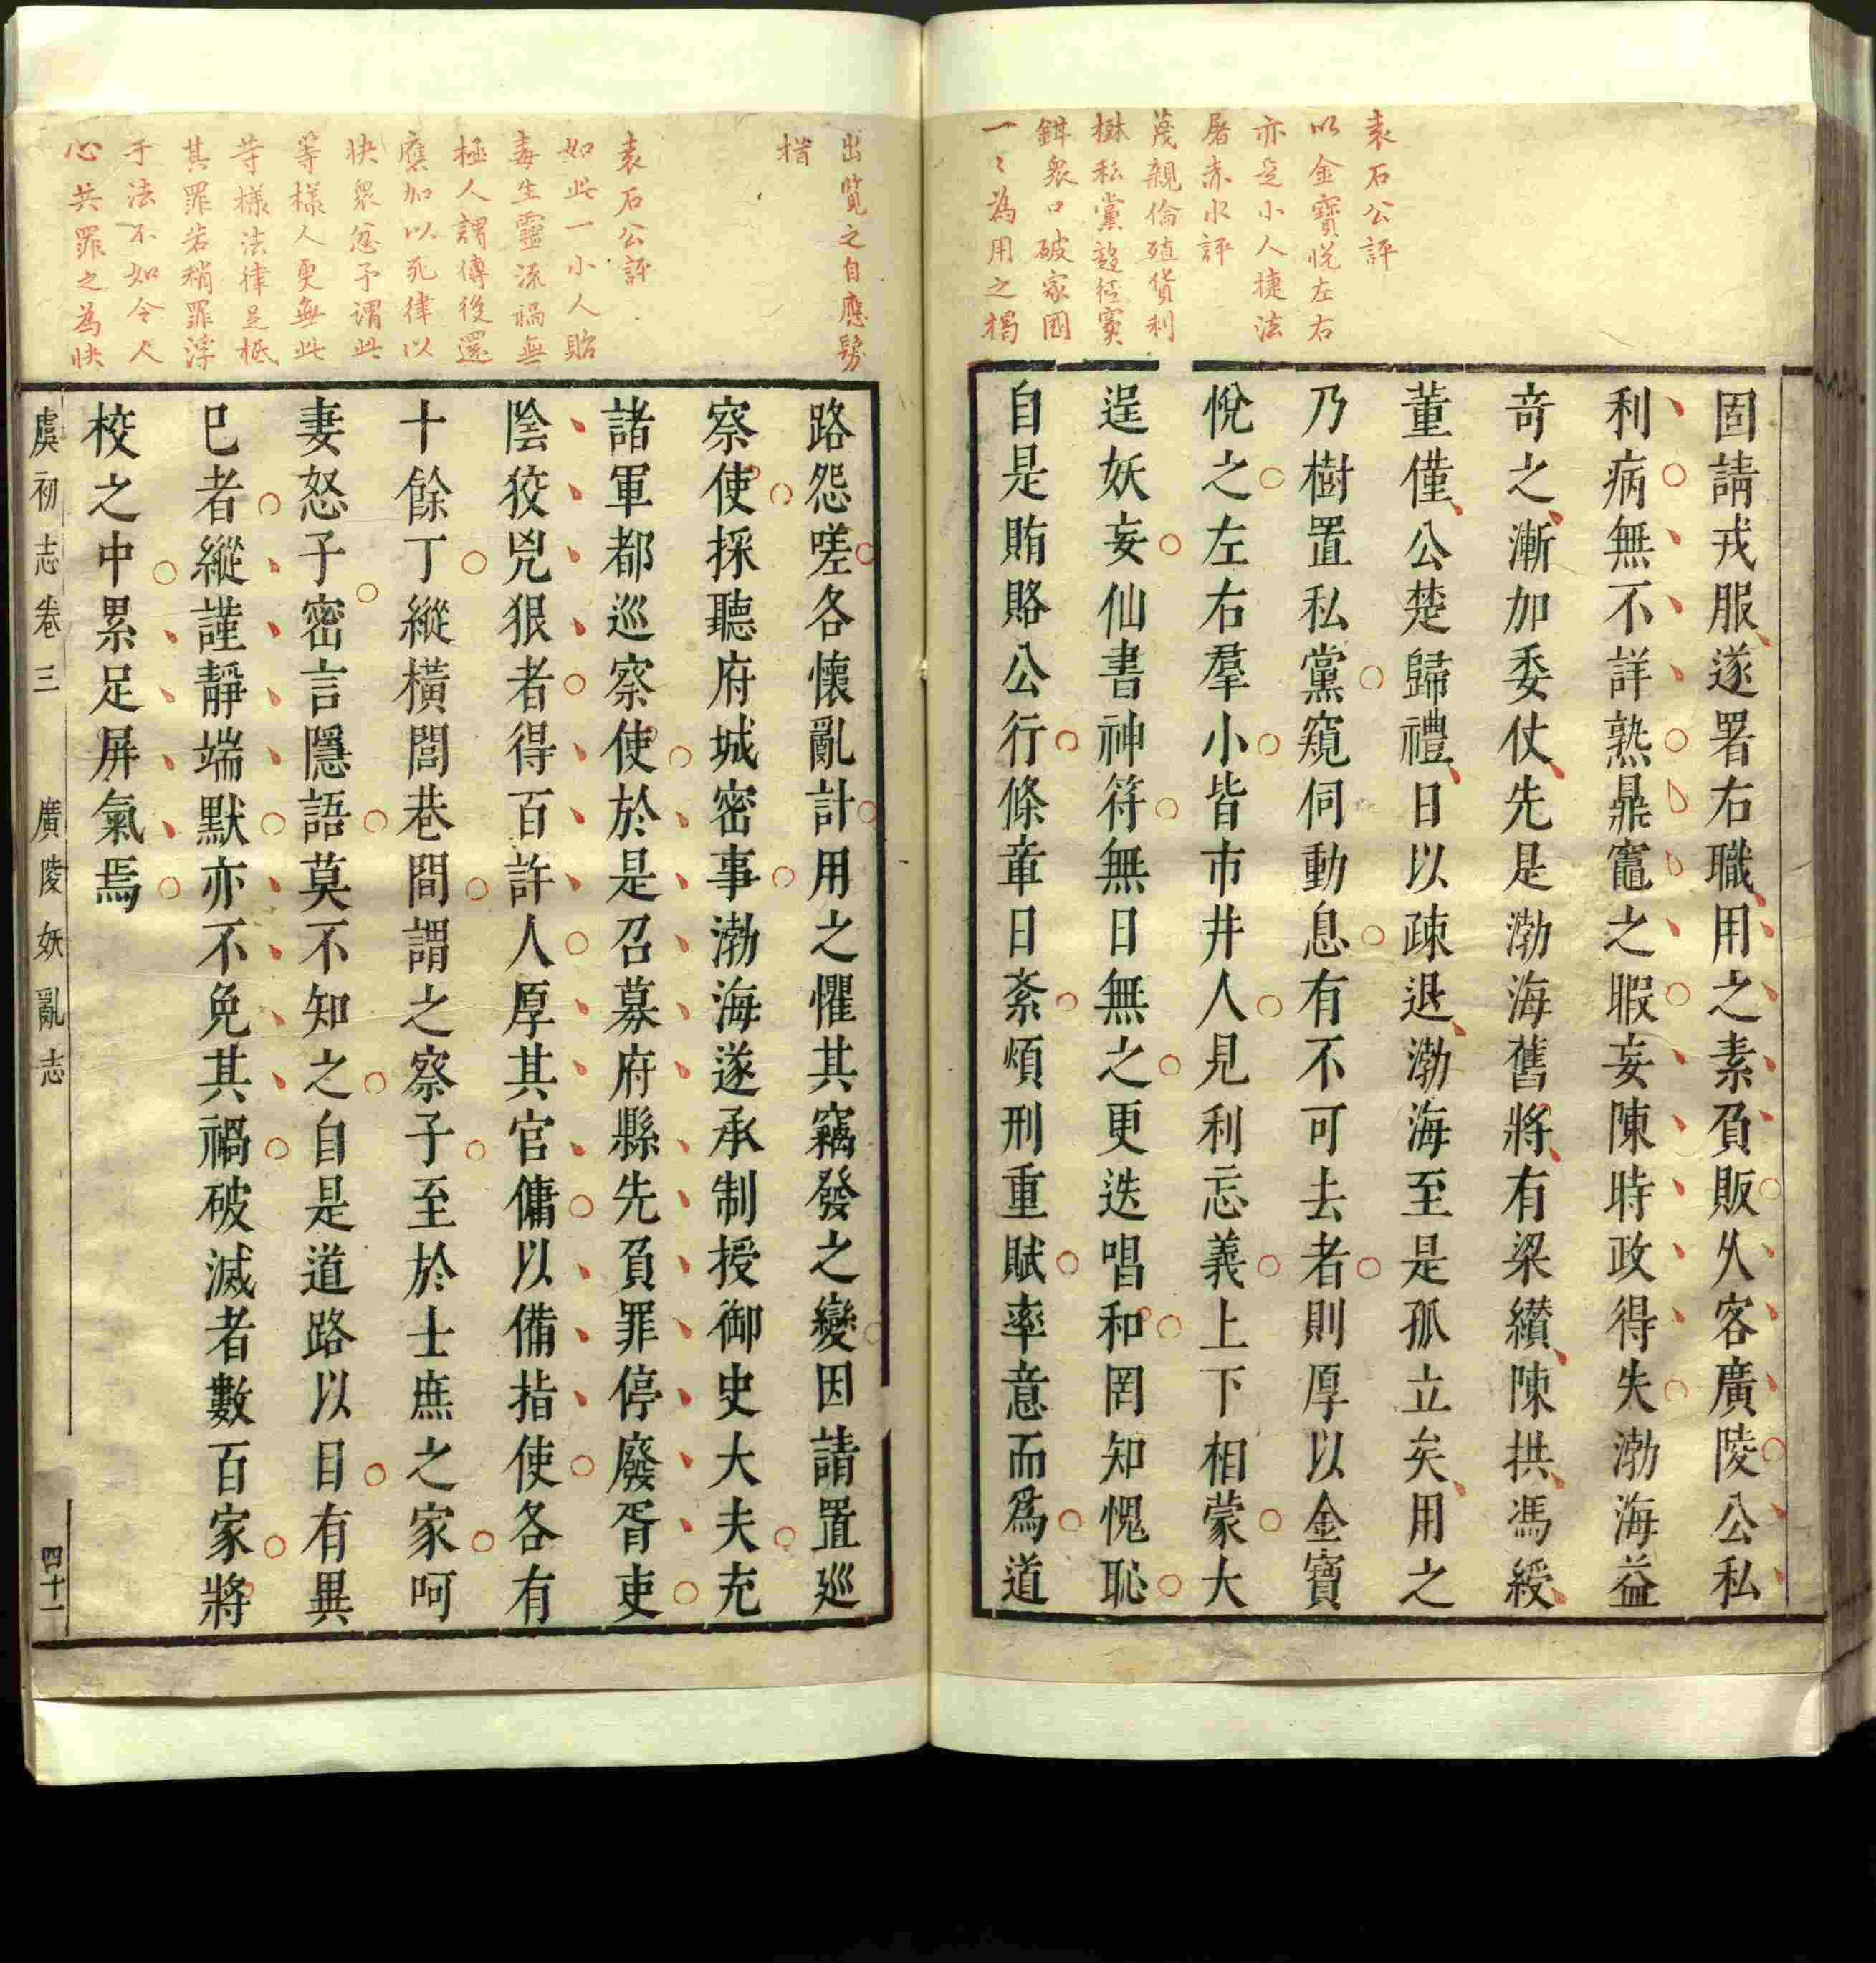 袁石公評
以金寶悅左右
亦是小人捷法
屠赤水評
蔑親倫殖貨利
樹私黨趨徑竇
鉗衆口破家國
一〻為用之揭
固請戎服遂署右職用之素負販久客廣陵公私
利病無不詳熟鼎竈之暇妄陳時政得失渤海益
奇之漸加委仗先是渤海舊將有梁纉陳拱馮綬
董僅公楚歸禮日以疎退渤海至是孤立矣用之
乃樹置私黨窺伺動息有不可去者則厚以金寶
悅之左右羣小皆市井人見利忘義上下相蒙大
逞妖妄仙書神符無日無之更迭唱和罔知愧恥
自是賄賂公行條章日紊煩刑重賦率意而爲道
出覽之自應髮
揩
袁石公評
如此一小人貽
毒生靈流禍無
極人謂傅後還
應加以死律以
快衆忿予謂此
等様人更無此
等様法律足柢
其罪若稍罪浮
于法不如令人
心共罪之為快
路怨嗟各懷亂計用之懼其竊發之變因請置廵
察使採聽府城密事渤海遂承制授御史大夫充
諸軍都巡察使於是召募府縣先負罪停廢胥吏
陰狡兇狠者得百許人厚其官傭以備指使各有
十餘丁縱橫閭巷間謂之察子至於士庶之家呵
妻怒子密言隱語莫不知之自是道路以目有異
已者縱謹靜端默亦不免其禍破滅者數百家將
校之中累足屏氣焉
虞初志卷三 廣陵妖亂志 四十一